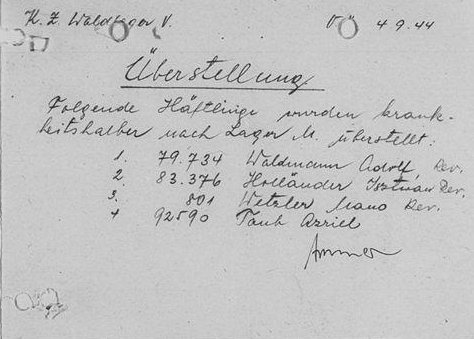 K. Z. Waldlager V. VÖ 4.9.44
Überstellung
Folgende Häftlinge wurden krank-
heitshalber nach Lager M. überstellt:
1. 79.734 Waldmann Adolf, Rev.
2 83.376 Holländer Isztvan Rev.
3. 801 Wetzler Mano Rev.
4 92590 Taub Azriel